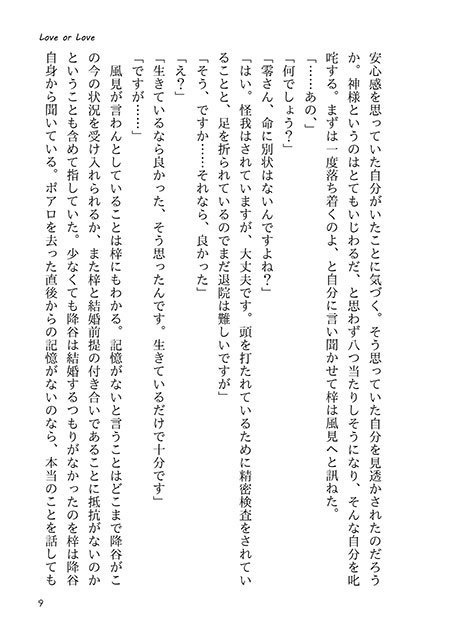 Love or Love
安心感を思っていた自分がいたことに気づく。そう思っていた自分を見透かされたのだろう
か。神様というのはとてもいじわるだ、と思わず八つ当たりしそうになり、そんな自分を叱
咤する。まずは一度落ち着くのよ、と自分に言い聞かせて梓は風見へと訊ねた。
「……あの、」
「何でしょう？」
「零さん、命に別状はないんですよね？」
「はい。怪我はされていますが、大丈夫です。頭を打たれているために精密検査をされてい
ることと、足を折られているのでまだ退院は難しいですが」
「そう、ですか……それなら、良かった」
「え？」
「生きているなら良かった、そう思ったんです。生きているだけで十分です」
「ですが……」
風見が言わんとしていることは梓にもわかる。記憶がないと言うことはどこまで降谷がこ
の今の状況を受け入れられるか、また梓と結婚前提の付き合いであることに抵抗がないのか
ということも含めて指していた。少なくても降谷は結婚するつもりがなかったのを梓は降谷
自身から聞いている。ポアロを去った直後からの記憶がないのなら、本当のことを話しても
9